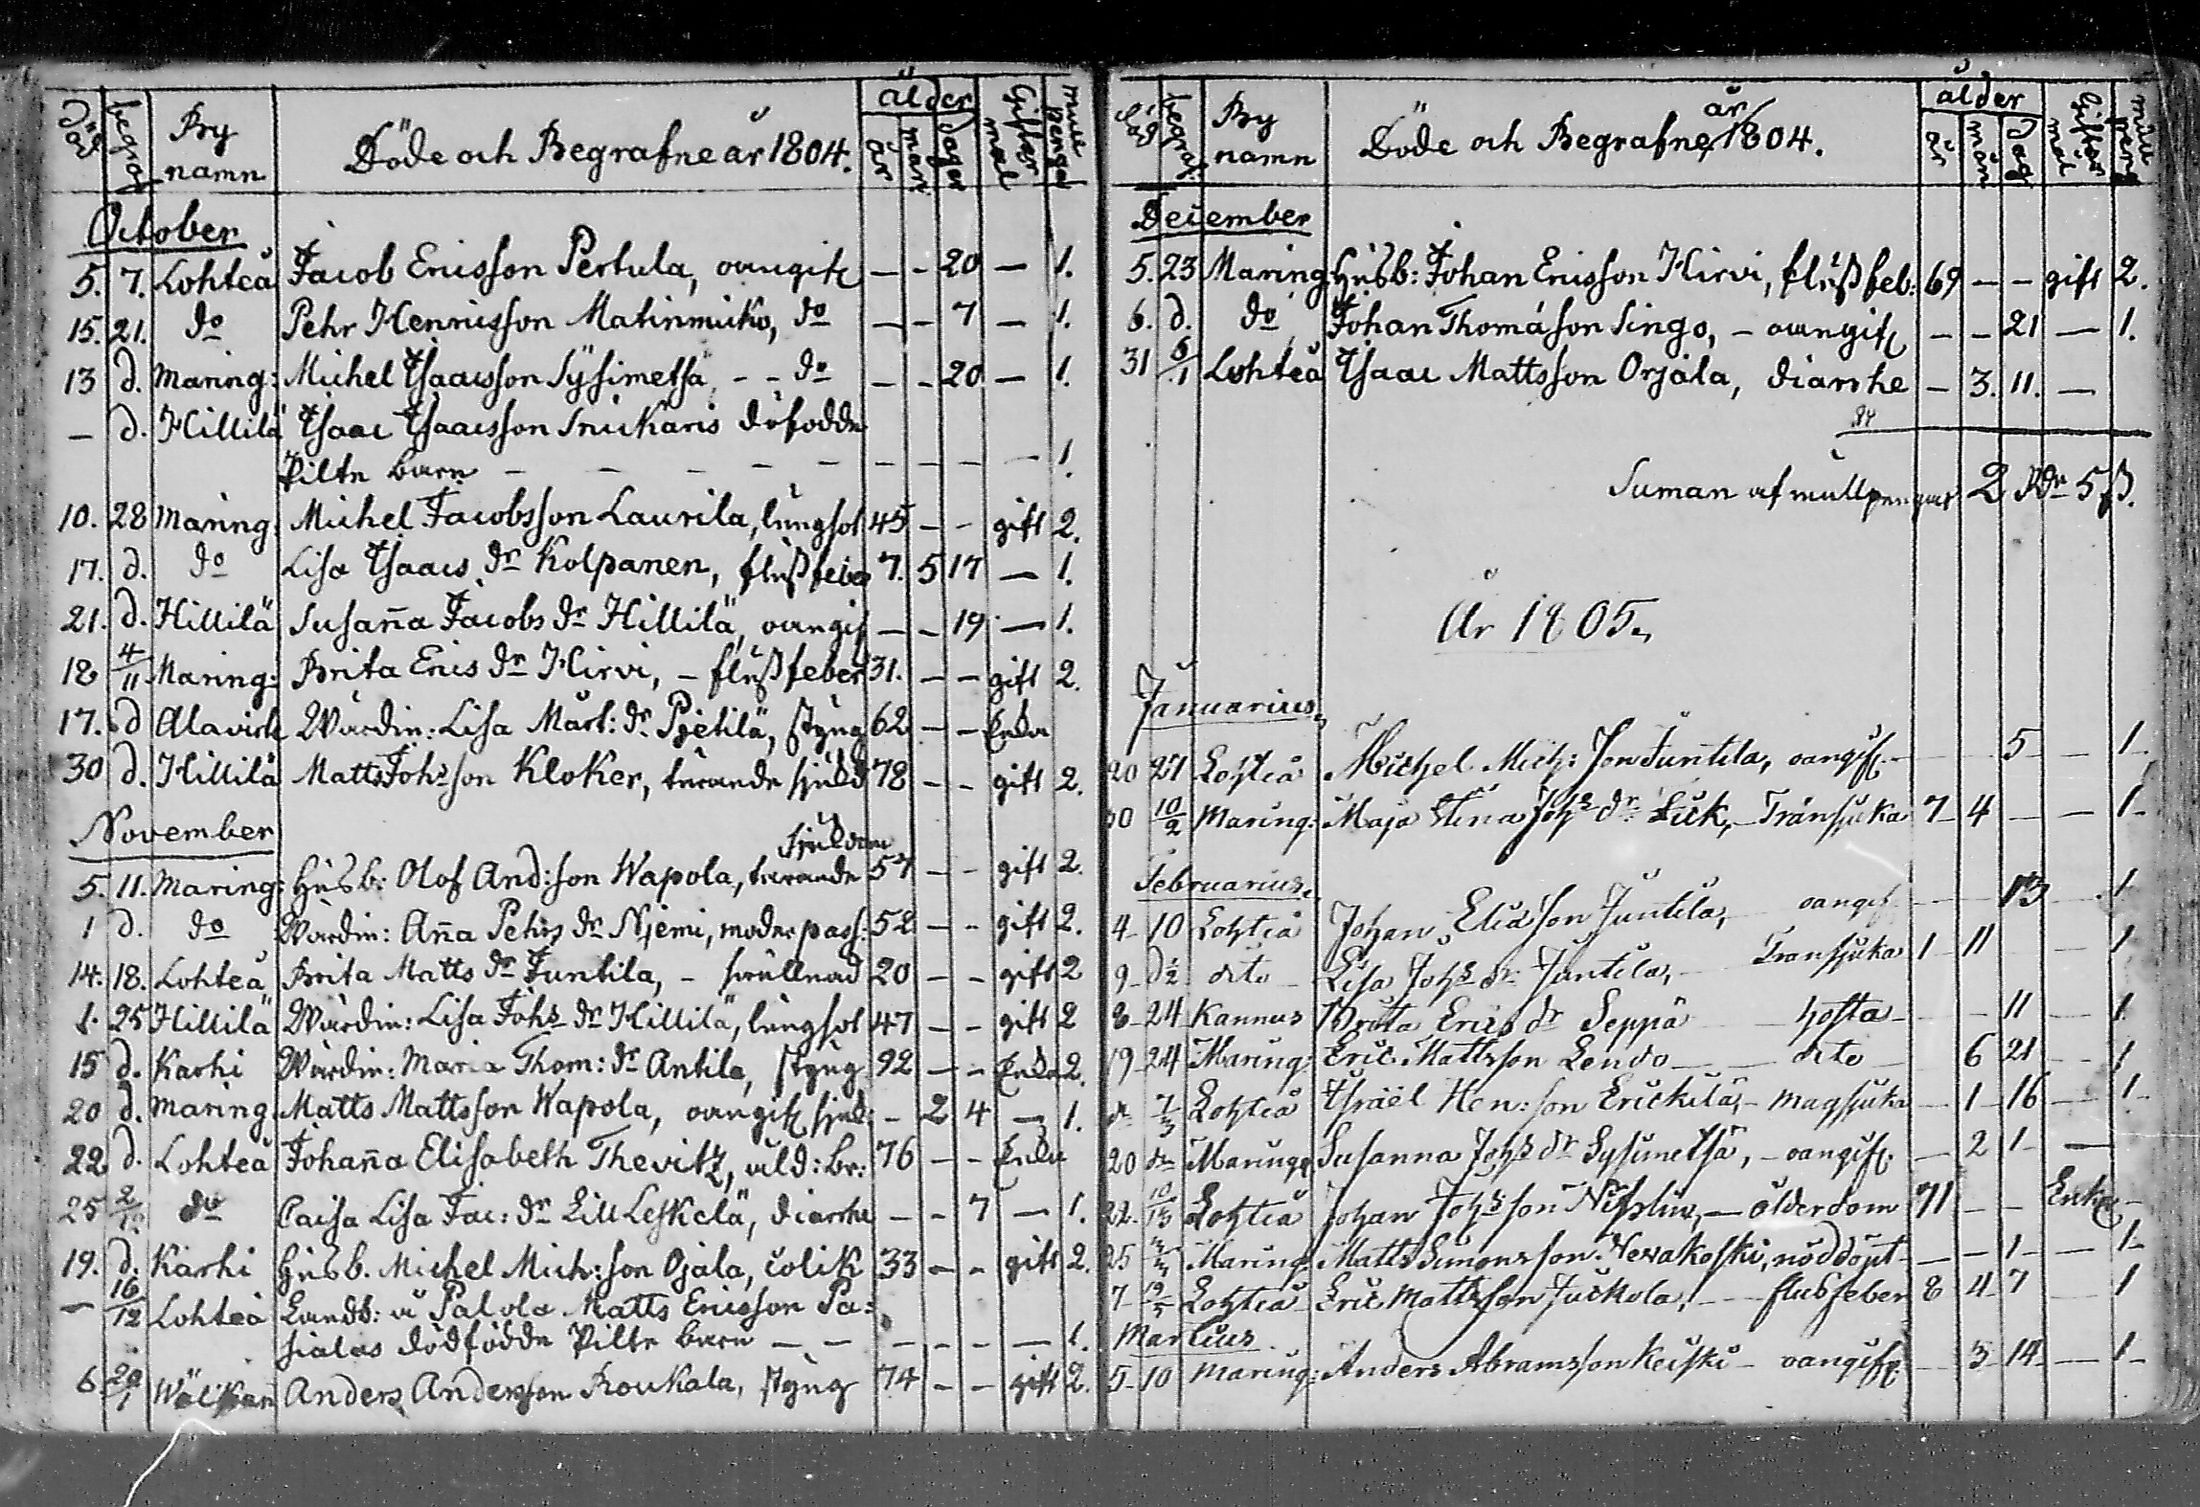 död begraf By namn Döde och Begrafne år 1804. ålder år mån dager Gifter mål mull penga
October
5. 7. Lohteå Jacob Ericsson Pertula, oangift — - 20 — 1.
15. 21. do Pehr Henricsson Matinmicko, do — - 7 — 1.
13 d. Maring: Michel Isaacsson Sysimetsä, - - do — - 20 — 1.
— d. Hillilä Isaac Isaacsson Snickaris döfödde
Pilte barn — — — — — — — — — 1.
10. 28 Maring. Michel Jacobsson Laurila, lungsot 45 — - gift 2.
17. d. do Lisa Isaacs dr Kolpanen, flussfeber 7. 5 17 — 1.
21. d. Hillilä Susanna Jacobs dr Hillilä, oangif — - 19 — 1.
18 4/11 Maring: Brita Erics dr Hirvi, - flussfeber 31. — - gift 2.
17. d Alavirde Wärdin: Lisa Mårt: dr Pietilä, styng 62 — - Enka
30 d. Hillilä Matts Johsson Kloker, tärande sjukd 78 — - gift 2.
November
sjukdom
5. 11. Maring: Husb: Olof And:son Wapola, tärande 57 — - gift 2.
1 d. do Wärdin: Anna Pehrs dr Njemi, moderpass: 52 — - gift 2.
14. 18. Lohteå Brita Matts dr Juntila, - svullnad 20 — - gift 2
1. 25 Hillilä Wärdin: Lisa Johs dr Hillilä, lungsot 47 — - gift 2
15 d. Karhi Wärdin: Maria Thom: dr Antila, styng 92 — - Enka 2.
20 d. Maring. Matts Mattsson Wapola, oangif sjuk: - 2 4 — 1.
22 d. Lohteå Johanna Elisabeth Thevitz, åld: br: 76 — - Enka
25 2/12 do Caisa Lisa Jac: dr Lill Leskelä, diarrhe — - 7 — 1.
19. d. Karhi Husb. Michel Mich:son Ojala, colik 33 — - gift 2.
— 16/12 Lohteå Landb: å Palola Matts Ericsson Pa:
sialas dödfödde Pilte barn — — — — — — 1.
6. 20/1 Wälikan Anders Andersson Roukala, styng 74 — - gift 2.
Död begraf: By namn Döde och Begrafne år 1804. ålder år mån dag Gifter mål mull peng
December
5. 23 Maring: Husb: Johan Ericsson Hirvi, flussfeb: 69 — - gift 2.
6. d. do Johan Thomasson Singo, - oangif — - 21 — 1.
31 6/1 Lohteå Isaac Mattsson Orjala, diarrhe - 3. 11. —
84
Suman af mullpengar 2 Rdr 5 ß.
År 1805.
Januarius.
20 27 Lohteå Michel Mich: son Juntila, oangif. — 5 — 1
30 10/2 Maring: Maja Stina Johs dr Lick, - Transjuka 7 4 — 1
Februarius.
4 10 Lohteå Johan Eliasson Juntila, oangif — 13 — 1
9 d dito Lisa Johs dr Juntila, — Transjuka 1 11 — 1
8 24 Kannus Brita Erics dr Seppä hosta — 11 — 1
19 24 Maring Eric Mattsson Lendo — dito 6 21 — 1
do 7/3 Lohteå Israël Hen:son Erickilä, - magsjuka — 1 16 — 1
20 do Maring Susanna Johs dr Sysimetsä, - oangif. — 2 1 —
22. 10/13 Lohteå Johan Johsson — ålderdom 71 — - Enka
25 Maring. Matts Simonsson Newakoski, nöddöpt — — 1 — 1
7 Lohteå Eric Mattsson Juckola, — flussfeber 8 4 7 — 1
Martius
5 10 Maring: Anders Abramsson Keiski - oangif — 3 14 — 1